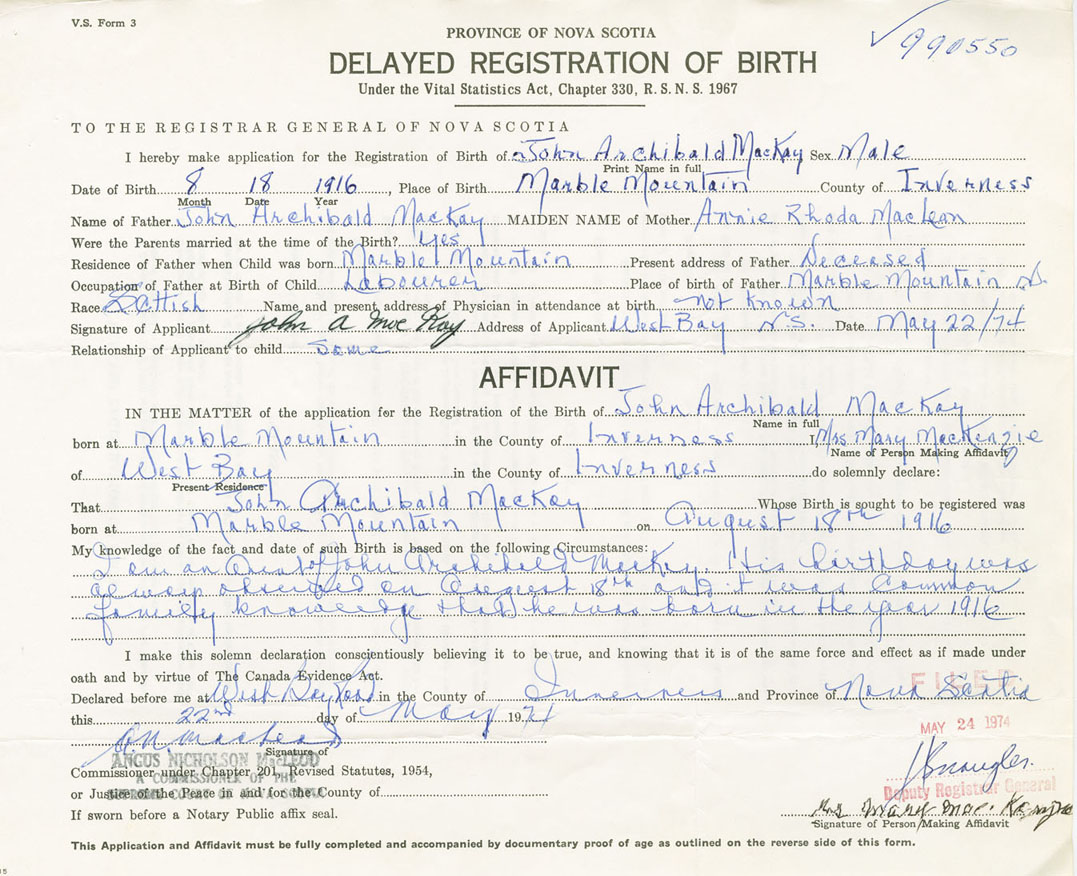 V.S. Form 3
✓990550
PROVINCE OF NOVA SCOTIA
DELAYED REGISTRATION OF BIRTH
Under the Vital Statistics Act, Chapter 330, R. S. N. S. 1967
TO THE REGISTRAR GENERAL OF NOVA SCOTIA
I hereby make application for the Registration of Birth of John Archibald MacKay Sex Male
Print Name in full
Date of Birth 8 18 1916, Place of Birth Marble Mountain County of Inverness
Month Date Year
Name of Father John Archibald MacKay MAIDEN NAME of Mother Annie Rhoda MacLean
Were the Parents married at the time of the Birth? Yes
Residence of Father when Child was born Marble Mountain Present address of Father Deceased
Occupation of Father at Birth of Child Labourer Place of birth of Father Marble Mountain
Race Scottish Name and present address of Physician in attendance at birth not known
Signature of Applicant John A MacKay Address of Applicant West Bay N.S. Date May 22/74
Relationship of Applicant to child Same
AFFIDAVIT
IN THE MATTER of the application for the Registration of the Birth of John Archibald MacKay
Name in full
born at Marble Mountain in the County of Inverness I, Mrs Mary MacKenzie
Name of Person Making Affidavit
of West Bay in the County of Inverness do solemnly declare:
Present Residence
That John Archibald MacKay Whose Birth is sought to be registered was
born at Marble Mountain on August 18th 1916
My knowledge of the fact and date of such Birth is based on the following Circumstances:
I am an Aunt of John Archibald MacKay. His birthday was
always observed on August 18th and it was Common
family knowledge that he was born in the year 1916
I make this solemn declaration conscientiously believing it to be true, and knowing that it is of the same force and effect as if made under
oath and by virtue of The Canada Evidence Act.
Declared before me at West Bay Road in the County of Inverness and Province of Nova Scotia
FILED
this 22nd day of May 1974
MAY 24 1974
A.N. MacLeod
Signature of
ANGUS NICHOLSON MacLEOD
Commissioner under Chapter 201, Revised Statutes, 1954,
A COMMISSIONER OF THE
or Justice of the Peace in and for the County of
SUPREME COURT OF NOVA SCOTIA
Deputy Registrar General
If sworn before a Notary Public affix seal.
Mrs Mary Mac. Kenzie
Signature of Person Making Affidavit
This Application and Affidavit must be fully completed and accompanied by documentary proof of age as outlined on the reverse side of this form.